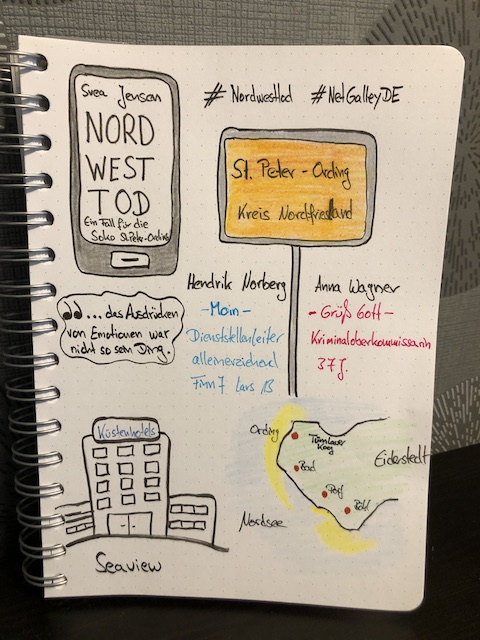 Svea Jensen
NORD
WEST
TOD
Ein Fall für die
Soko St.Peter-Ording
#Nordwesttod #NetGalleyDE
St. Peter-Ording
Kreis Nordfriesland
Hendrik Norberg
-Moin-
Dienststellenleiter
alleinerziehend
Finn 7 Lars 13
Anna Wagner
-Grüß Gott-
Kriminaloberkommissarin
37 J.
„... das Ausdrücken
von Emotionen war
nicht so sein Ding.
Küstenhotels
Seaview
Ording
Tümlauer
Koog
Bad
Dorf
Böhl
Eiderstedt
Nordsee